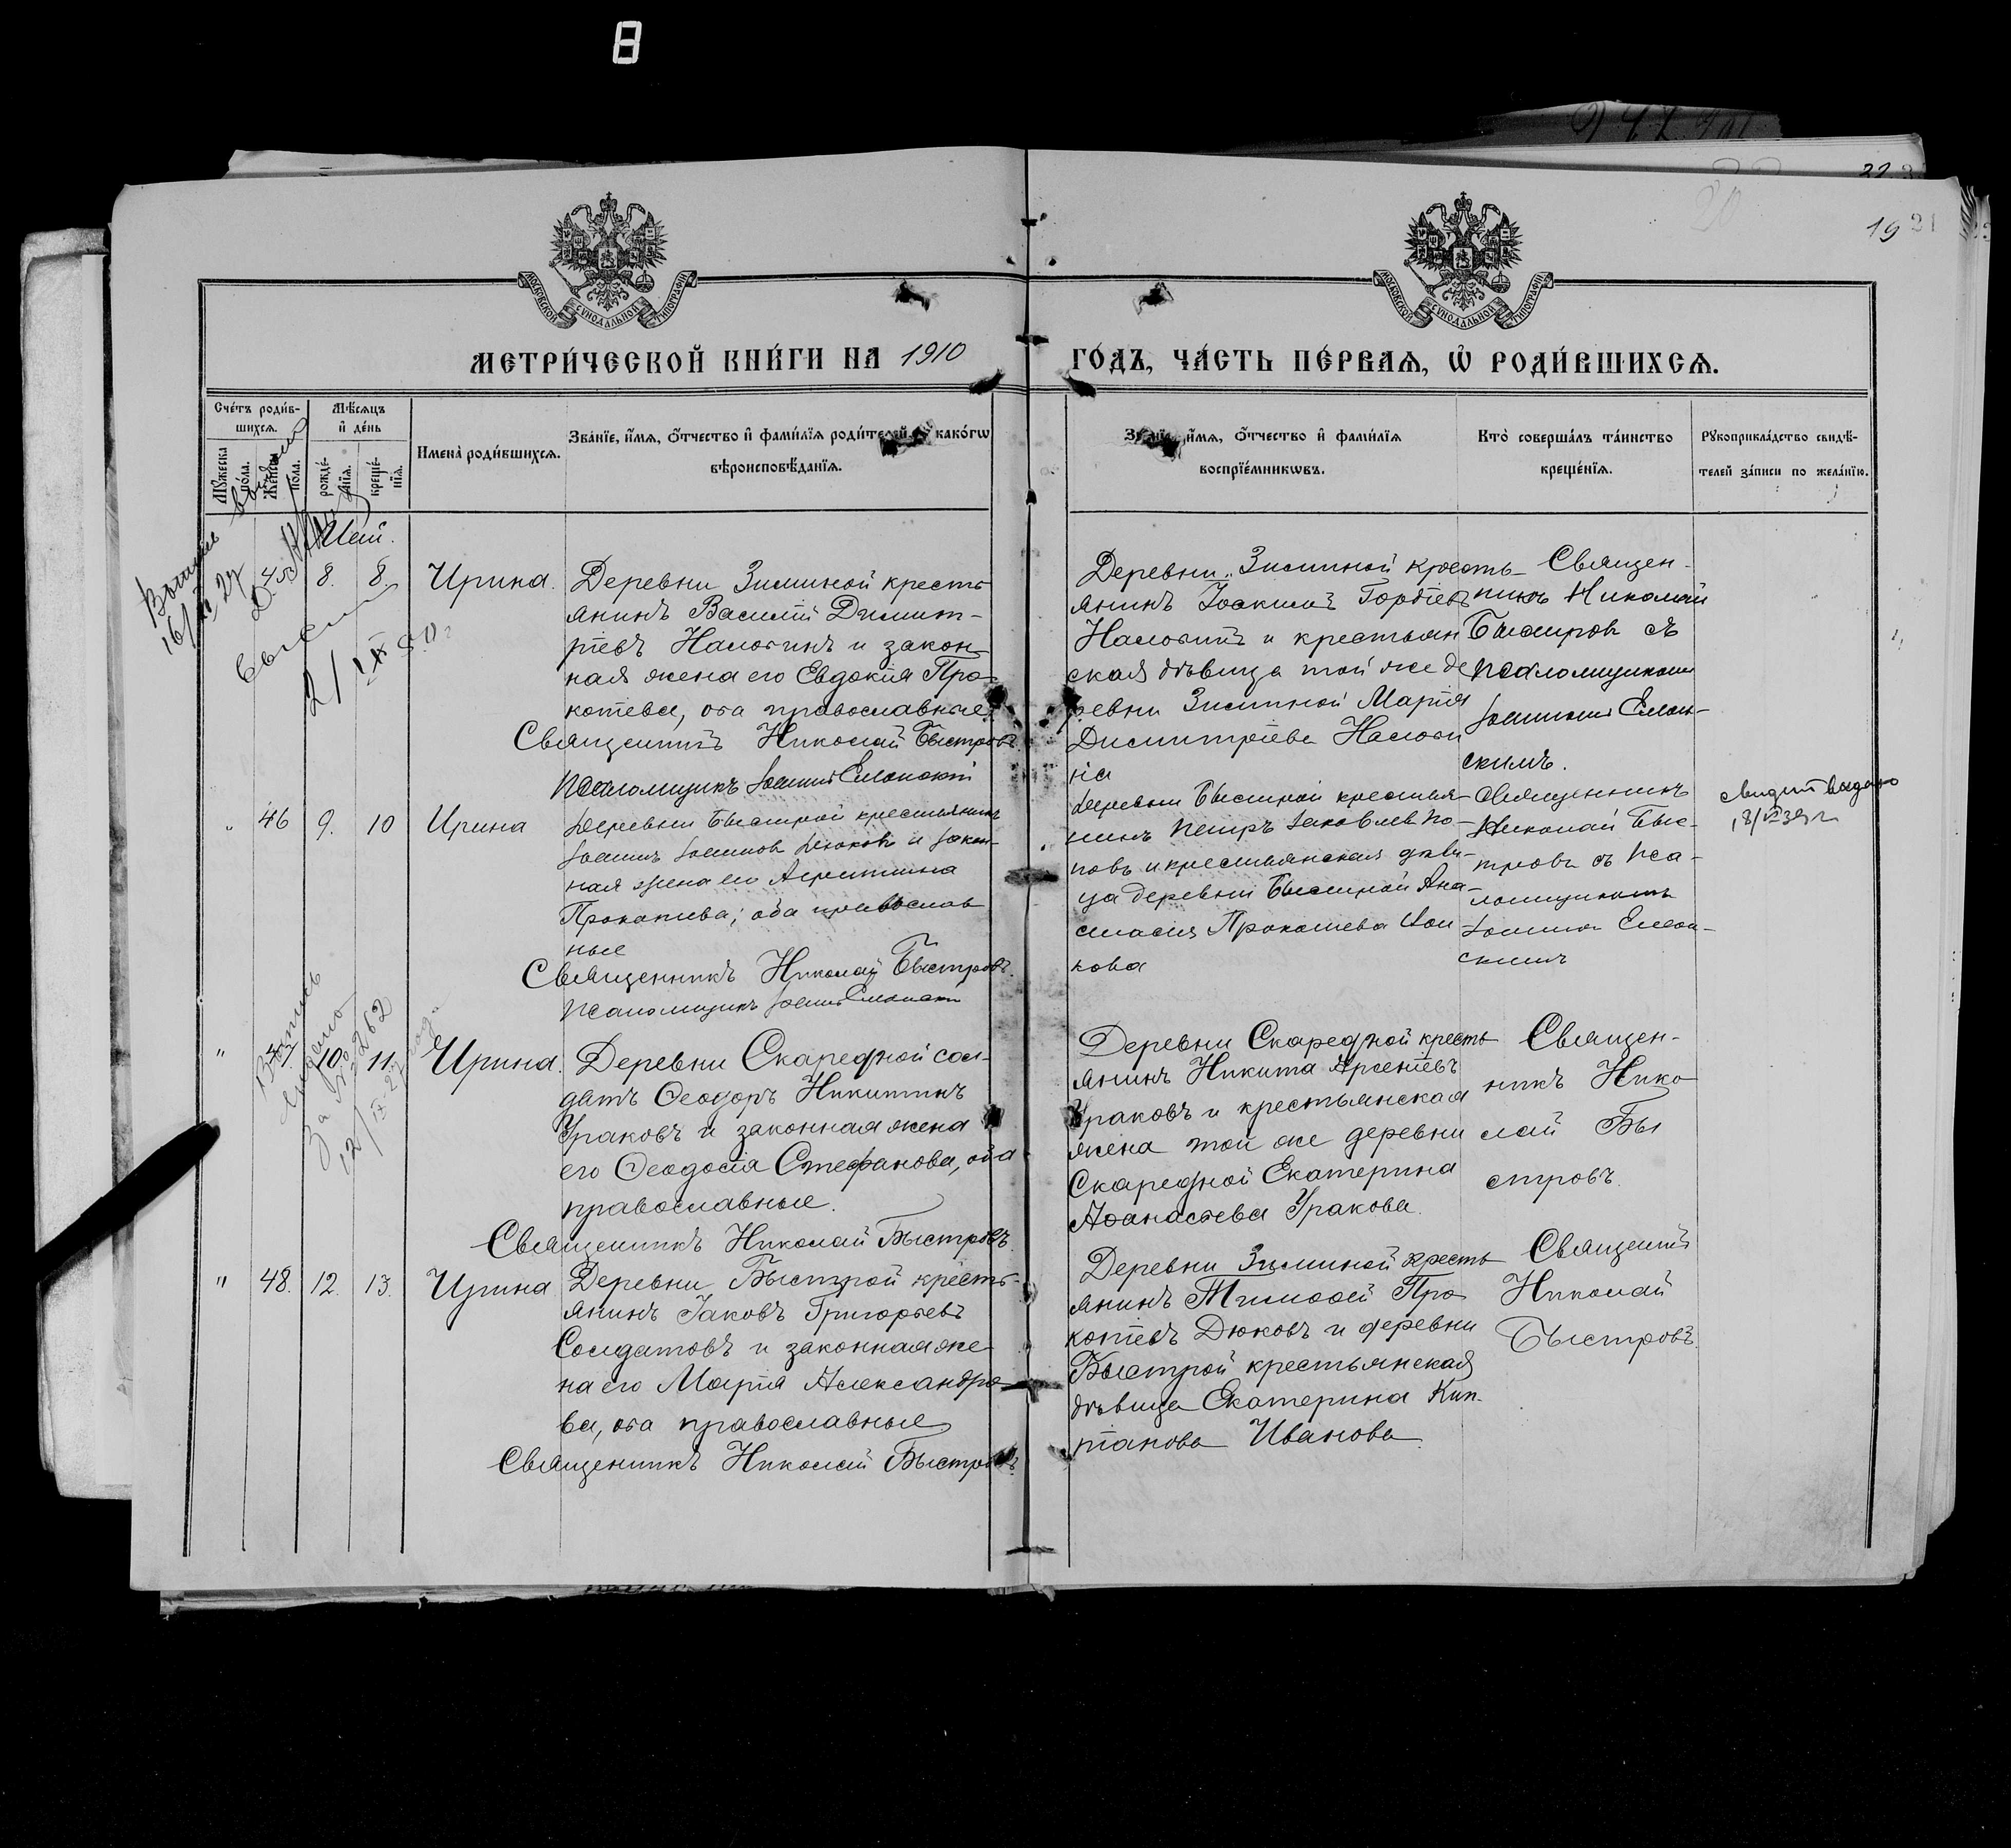 22
19 21
МОСКОВСКОЙ СѴНОДАЛЬНОЙ ТИПОГРАФІИ
МОСКОВСКОЙ СѴНОДАЛЬНОЙ ТИПОГРАФІИ
МЕТРИ́ЧЕСКОЙ КНИ́ГИ НА 1910
ГО́ДЪ, ЧА́СТЬ ПЕ́РВАѦ, Ѡ РОДИ́ВШИХСѦ.
Сче́тъ роди́в-
шихсѧ.
Мꙋжеска по́ла.
Же́нска по́ла.
Мѣ́сѧцъ
и҆ де́нь
рожде́-
нїѧ.
креще́-
нїѧ.
И҆мена̀ роди́вшихсѧ.
Зва́нїе, и҆́мѧ, ѻ҆́тчество и҆ фами́лїѧ роди́телей, како́гѡ
вѣроисповѣ́данїѧ.
и҆́мѧ, ѻ҆́тчество и҆ фами́лїѧ
воспрїе́мникѡвъ.
Кто̀ соверша́лъ та́инство
креще́нїѧ.
Рꙋкоприкла́дство свидѣ́-
телей за́писи по жела́нїю.
Май.
45 8. 8. Ирина.
Деревни Зиминой кресть
янинъ Василій Димит-
ріевъ Налогинъ и закон-
ная жена его Евдокія Про-
копіева, оба православные.
Священникъ Николай Быстровъ
Псаломщикъ Іоаннъ
Деревни Зиминой кресть-
янинъ Іоакимъ Гордіевъ
Налогинъ и крестьян
ская дѣвица той же де
ревни Зиминой Марія
Димитріева Налоги
на
Священ-
никъ Николай
Быстровъ съ
псаломщикомъ
Іоанномъ
скимъ.
" 46 9. 10 Ирина
Деревни Быстрой крестьянинъ
Іоаннъ Іоанновъ Дюковъ и закон-
ная жена его Агриппина
Прокопіева; оба православ
ные
Священникъ Николай Быстровъ.
Псаломщикъ Іоаннъ
Деревни Быстрой крестья-
нинъ Петръ Іаковлевъ По-
повъ и крестьянская дѣви-
ца деревни Быстрой Ана-
стасія Прокопіева
кова
Священникъ
Николай Быс-
тровъ съ Пса-
ломщикомъ
Іоанномъ
скимъ
выдано
" 47 10. 11. Ирина.
Деревни Скаредной сол-
датъ Ѳеодоръ Никитинъ
Ураковъ и законная жена
его Ѳеодосія Стефанова, оба
православные.
Священникъ Николай Быстровъ.
Деревни Скаредной кресть
янинъ Никита Арсеніевъ
Ураковъ и крестьянская
жена той же деревни
Скаредной Екатерина
Аѳанасіева Уракова.
Священ-
никъ Нико
лай Бы
стровъ.
выдано
за № 262
12/IX-27 года
" 48. 12. 13. Ирина
Деревни Быстрой кресть-
янинъ Іаковъ Григорьевъ
Солдатовъ и законная же
на его Марія Александро-
ва, оба православные
Священникъ Николай Быстровъ.
Деревни Зиминой кресть
янинъ Тимоѳей Про
копіевъ Дюковъ и деревни
Быстрой крестьянская
дѣвица Екатерина Кип-
ріанова Иванова.
Священникъ
Николай
Быстровъ.